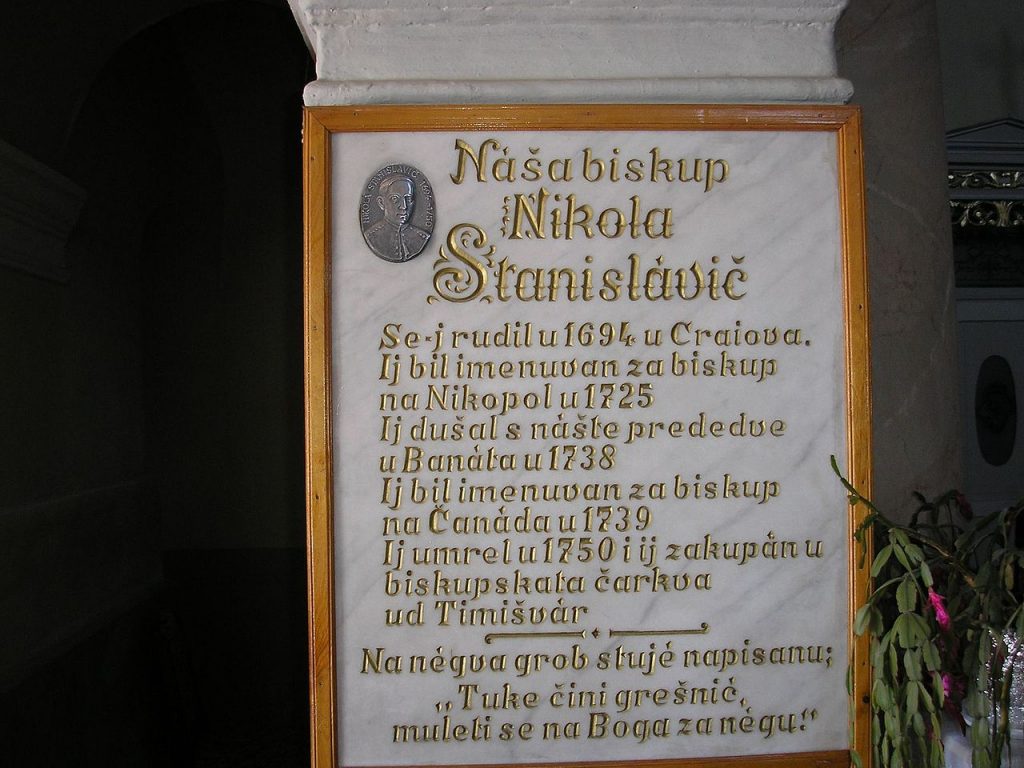 Náša biskup
Nikola
Stanislávič
NIKOLA STANISLAVIČ 1694-1750
Se-j rudil u 1694 u Craiova.
Ij bil imenuvan za biskup
na Nikopol u 1725
Ij dušal s nášte prededve
u Banáta u 1738
Ij bil imenuvan za biskup
na Čanáda u 1739
Ij umrel u 1750 i ij zakupán u
biskupskata čarkva
ud Timišvár
Na négva grob stujé napisanu;
„Tuke čini grešnić,
muleti se na Boga za négu!“